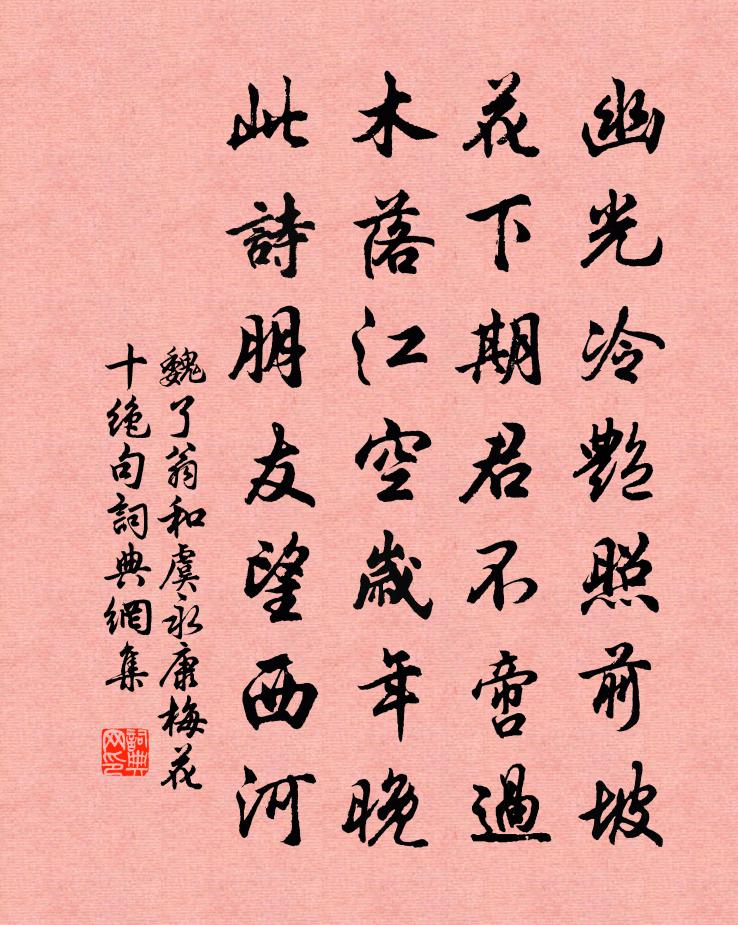 幽光冷艷照前坡
花下期君不啻過
木落江空歲年晚
此詩朋友望西河
魏了翁和虞永康梅花
十絶句詞典網集
詞典
网印